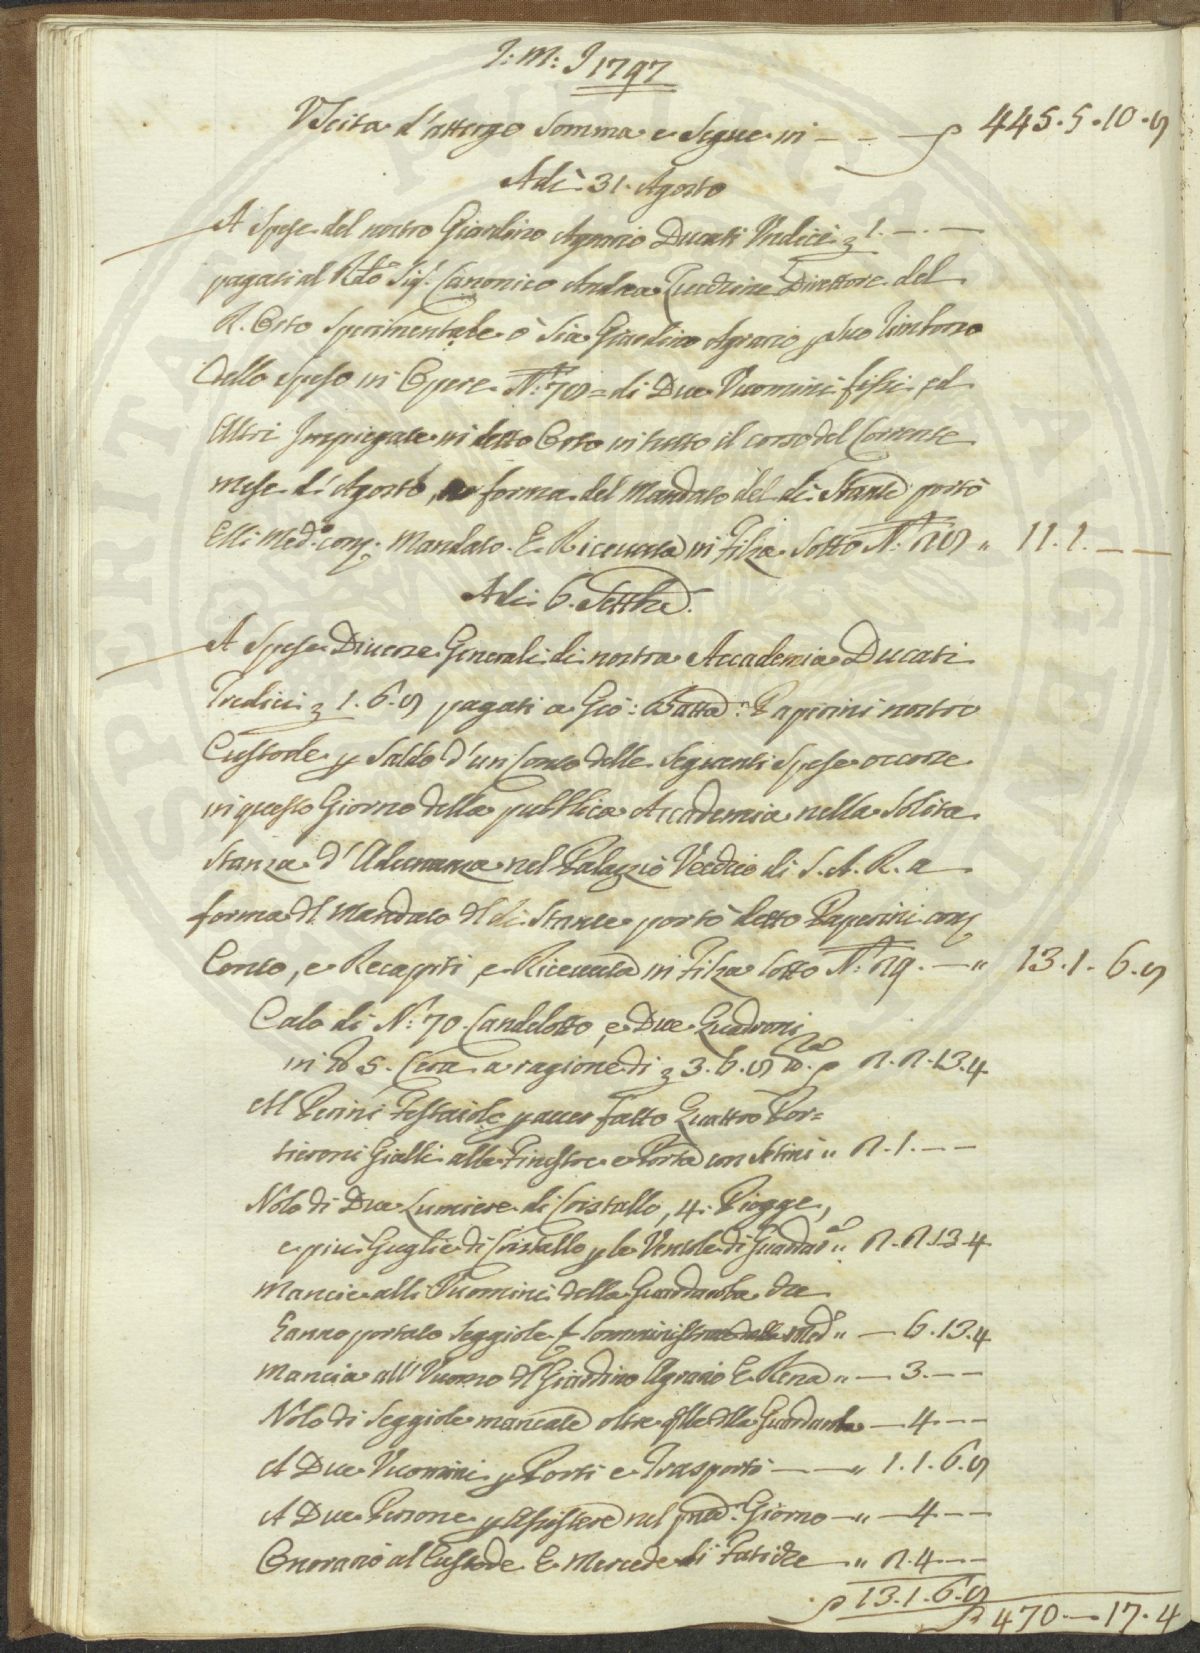 J: M: J 1797
Uscita d'attergo Somma e Segue in — — 445.5.10.8
Adì 31. Agosto
A Spese del nostro Giardino Agrario Ducati Undici 1. — . —
pagati al Sig.r Canonico Andrea Zucchini Direttore del
R. Orto Sperimentale ò Sia Giardino Agrario p Suo Rimborso
dello speso in Opere N.° 78 = di Due Uuomini fissi ed
Altri Impiegate in detto Orto in tutto il corso del Corrente
mese di Agosto, a forma del Mandato del dì Stante portò
Elli Med.° Mandato. E Riceuuta in Filza Sotto N.° 28 " 11.1. — —
Adi 6. Settbre.
A Spese Diuerse Generali di nostra Accademia Ducati
Tredici 1.6.8 pagati a Gio: Batta Paperini nostro
Custode p Saldo d'un Conto delle Seguenti Spese occorse
in questo Giorno della pubblica Accademia nella Solita
Stanza d'Adunanza nel Palazzo Vecchio di S. A. R. a
forma del Mandato del dì Stante portò detto Paperini
Conto, e Recapiti, e Riceuuta in Filza Sotto N.° 29. — " 13.1.6.8
Calo di N.° 70. Candelotto, e Due Quadroni
in 5. Cera a ragione di 3.6.8 2.2.13.4
Al Perini Festaiolo p auer fatto Quattro Por=
tieroni Gialli alle Finestre e Porta con " 2.1. — —
Nolo di Due Lumiere di Cristallo, 4. Piogge,
e più Guglie di Cristallo p le Ventole di Guardar.a " 2.2.13.4
Mancie alli Uuomini della Guardaroba che
Hanno portato Seggiole Somministrate dalla Med.a " — 6.13.4
Mancia all'Uuomo del Giardino Agrario E Rena " — 3. — —
Nolo di Seggiole mancate oltre qlle della Guardaroba — 4. — —
A Due Uuomini p Porti e Trasporti — — " 1.1.6.8
A Due Persone p Assistere nel Giorno — " — 4 — —
Onorario al Custode E Mercede di Fatiche — " 2.4 — —
13.1.6.8
470. — 17.4